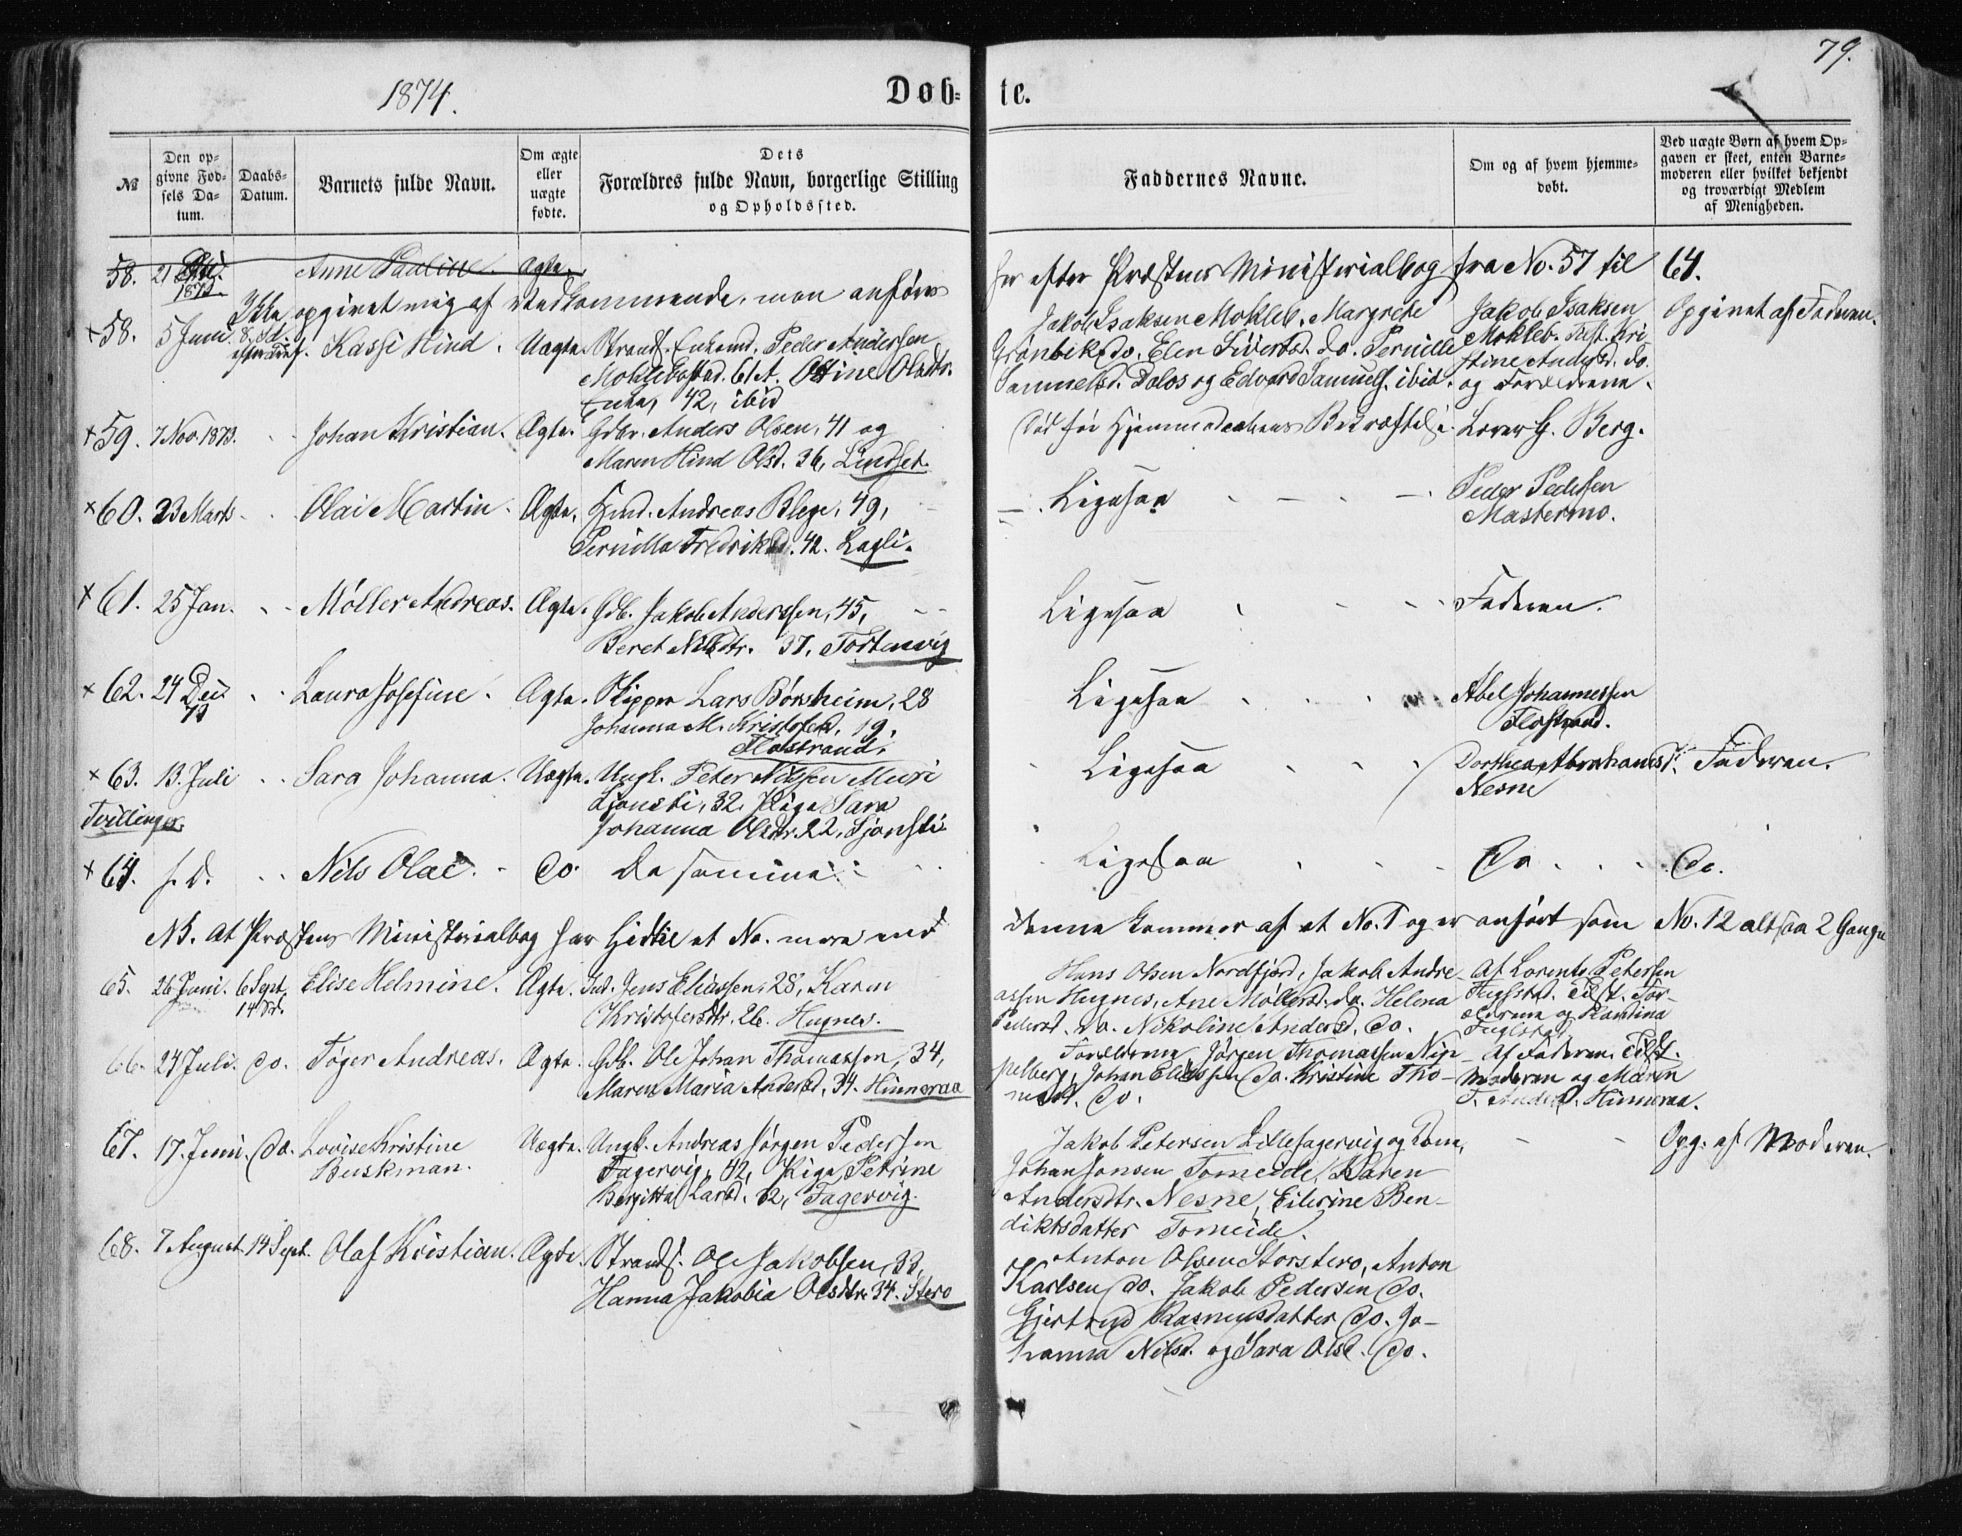 79.
1874.
Døb= te.
№
Den op=
givne Fød=
sels Da=
tum.
Daabs=
Datum.
Barnets fulde Navn.
Om ægte
eller
uægte
fødte.
Dets
Forældres fulde Navn, borgerlige Stilling
og Opholdssted.
Faddernes Navne.
Om og af hvem hjemme=
døbt.
Ved uægte Børn af hvem Op=
gaven er skeet, enten Barne=
moderen eller hvilket bekjendt
og troværdigt Medlem
af Menigheden.
58. 21 1873. Anne Pauline. Ægte.
Ikke opgivet mig af vedkommende, men anføres
her efter Præstens Ministerialbog fra No. 57 til 64.
+ 58. 5 Juni Kassi Hind. Uægte. Strands. Enkemd. Peder Andersen
61 A. Ottine Olsdtr.
Enke, 42, ibid
Jakob Isaksen Mokleb. Margrete
do. Elen Sivertsd. do. Pernille
Samuelsd. Dalos og Edvard Samuels. ibid.
Jakob Isaksen
Mokleb. Tilst. Kri-
stine Andersd. do.
og Forældrene.
Opgivet af Faderen.
+ 59. 7 Nov. 1873. Johan Kristian. Ægte. Gdbr. Anders Olsen, 41 og
Maren Hind Olsd. 36, Lindset.
Død før Hjemmedaabens Bekræftelse. Laver G. Berg.
+ 60. 23 Marts Olai Martin. Ægte. Hmd. Andreas Blege, 49,
Pernilla Fredriksd. 42. Lagli.
Ligesaa Peder Pedersen
Mastermo.
+ 61. 25 Jan. Møller Andreas. Ægte. Gdb. Jakob Anderssen, 45,
Beret Nilsdtr. 37, Tortenvig
Ligesaa Faderen.
+ 62. 24 Dec 73 Laura Josefine. Ægte. Skipper Lars Børsheim, 28
Johanna M. Kristofersd. 19.
Flostrand.
Ligesaa Abel Johannessen
Flostrand.
+ 63. 13. Juli Sara Johanna. Uægte. Ungk. Peter Nilssen Muri
32. Pige Sara
Johanna Olsdtr. 22, Sjonsti
Tvillinger.
Ligesaa Dorthea Abrahamsd. Faderen.
Nesne
+ 64. s. D. Nils Olai. Do. De samme
Ligesaa Do Do.
NB. At Præstens Ministerialbog har hidtil et No. mere end
denne kommer af at No. 7 og er anført som No. 12 altsaa 2 Gange
65. 26 Juni. 6 Sept. Elise Helmine. Ægte. Ind. Jens Eliassen, 28, Karen
Kristofersdtr, 26. Hugnes.
Hans Olsen Nordfjord, Jakob Andre-
assen Hugnes, Ane Møllersd. do. Helena
Pedersd. do. Nikoline Andersd. Do.
Af Lorents Petersen
Fuglstad. Tilst. For-
ældrene og
Fuglstad
66. 24 Juli. Do. Tøger Andreas. Ægte. Gdb. Ole Johan Thomassen, 34,
Maren Maria Andersd, 34. Hinneraa
Forældrene, Jørgen Thomassen
Johan Eliassen Do. Kristine Tho-
masd. Do.
Af Faderen. Tilst.
Moderen og Maren
T. Andersd. Hinneraa.
67. 17 Juni. Do. Lovise Kristine
Buskman.
Uægte. Ungk. Andreas Jørgen Pedersen
Fagervig, 42, Pige Petrine
Bergitta Larsd. 32, Fagervig.
Jakob Petersen Lillefagervig og Kone,
Johan Jonsen Tomeide, Karen
Andersdtr. Nesne, Eilerine Ben-
diktsdatter Tomeide.
Opg. af Moderen.
68. 7 August. 14 Sept. Olaf Kristian. Ægte. Strands. Ole Jakobsen, 33,
Hanna Jakobia Olsdtr. 34. Stero
Anton Olsen Storstero, Anton
Karlsen Do. Jakob Pedersen Do.
Gjertrud Rasmusdatter Do. Jo-
hanna Nilsd. og Sara Olsd. Do.